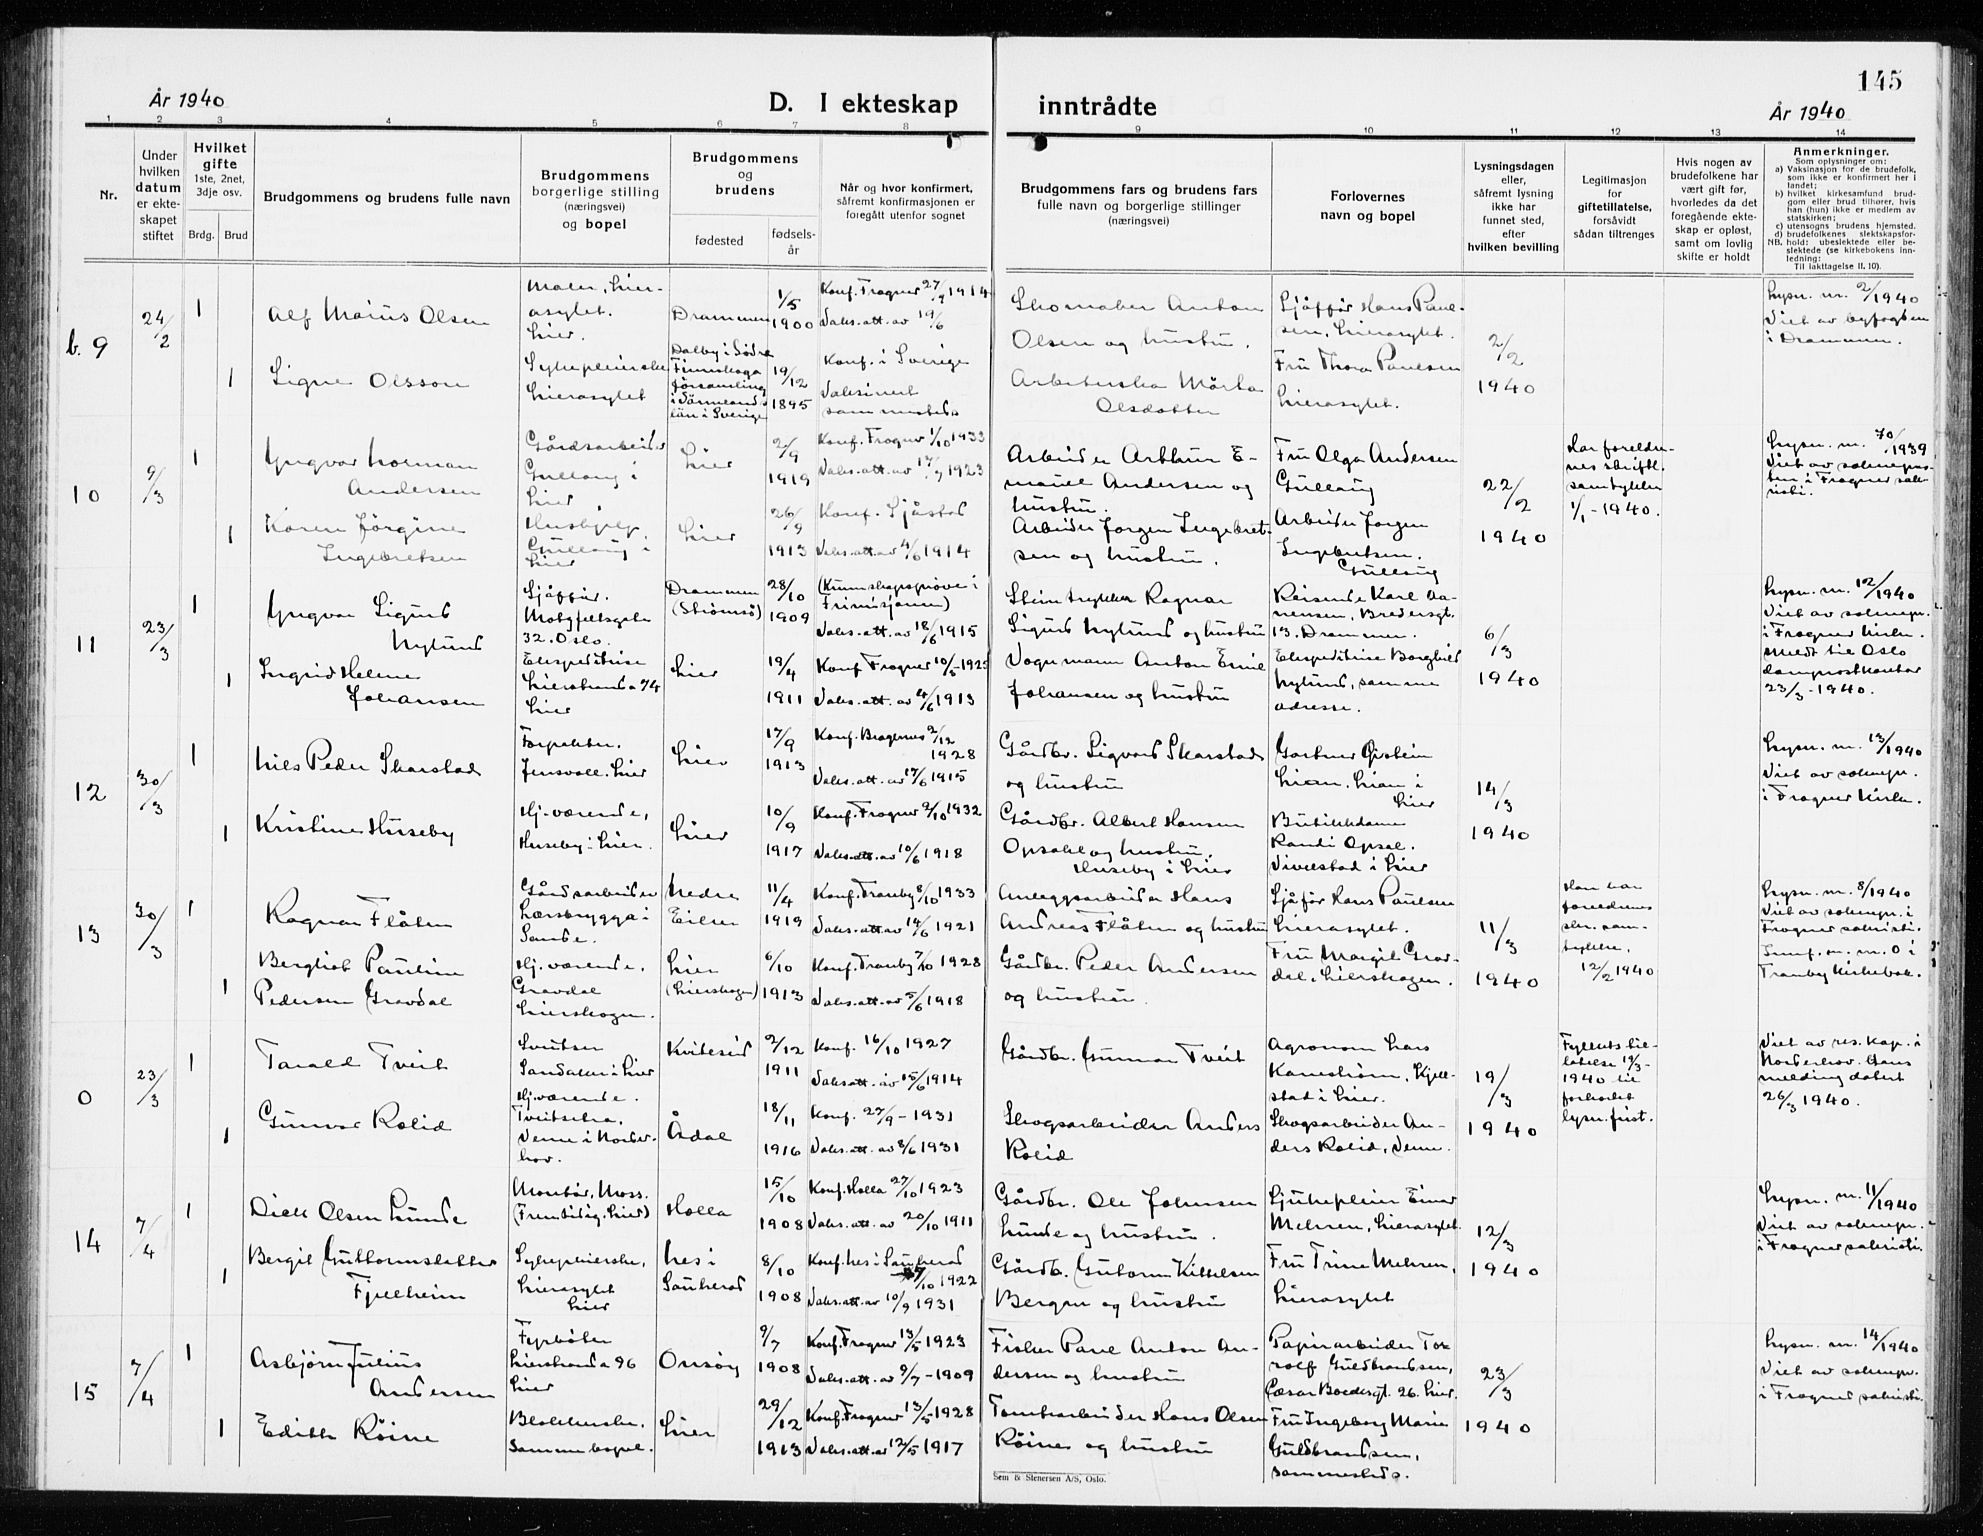 145
År 1940
D. I ekteskap inntrådte
År 1940
1 2 3 4 5 6 7 8 9 10 11 12 13 14
Nr.
Under hvilken datum er ekteskapet stiftet
Hvilket gifte
1ste, 2net, 3dje osv.
Brdg. Brud
Brudgommens og brudens fulle navn
Brudgommens borgerlige stilling (næringsvei) og bopel
Brudgommens og brudens
fødested
fødselsår
Når og hvor konfirmert, såfremt konfirmasjonen er foregått utenfor sognet
Brudgommens fars og brudens fars fulle navn og borgerlige stillinger (næringsvei)
Forlovernes navn og bopel
Lysningsdagen eller, såfremt lysning ikke har funnet sted, efter hvilken bevilling
Legitimasjon for giftetillatelse, forsåvidt sådan tiltrenges
Hvis nogen av brudefolkene har vært gift før, hvorledes da det foregående ekteskap er opløst, samt om lovlig skifte er holdt
Anmerkninger.
Som oplysninger om:
a) Vaksinasjon for de brudefolk, som ikke er konfirmert her i landet;
b) hvilket kirkesamfund brudgom eller brud tilhører, hvis han (hun) ikke er medlem av statskirken;
c) utensogns brudens hjemsted.
d) brudefolkenes slektskapsforhold: ubeslektede eller beslektede (se kirkebokens innledning:
NB. Til iakttagelse II. 10).
b. 9
24/2
1
Alf Marius Olsen
Maler, Lierasylet. Lier.
Drammen
1/5 1900
Konf. Frogner 27/9 1914
Vaks. att. av 19/6
Skomaker Anton Olsen og hustru.
Sjåffør Hans Paulsen, Lierasylet.
2/2 1940
Lysn. nr. 2/1940
Viet av byfogden i Drammen.
1
Signe Olsson
Sykepleierske Lierasylet
Dalby i Södra Finnskoga församling i Värmlands län i Sverige
19/12 1895
Konf. i Sverige
Vaksinert sammesteds
Arbeterska Märta Olsdotter
Fru Thora Paulsen Lierasylet.
10
9/3
1
Yngvar Norman Andersen
Gårdsarbeider Gullaug i Lier
Lier
2/9 1919
Konf. Frogner 1/10 1933
Vaks. att. av 17/9 1923
Arbeider Arthur Emanuel Andersen og hustru.
Fru Olga Andersen Gullaug
22/2 1940
Har foreldrenes skriftl. samtykke 1/1-1940.
Lysn. nr. 70/1939
Viet av sognepresten i Frogner sakristi.
1
Karen Jörgine Ingebretsen
Hushjelp, Gullaug i Lier
Lier
26/9 1913
Konf. Sjåstad
Vaks. att. av 4/6 1914
Arbeider Jørgen Ingebretsen og hustru.
Arbeider Jørgen Ingebretsen. Gullaug
11
23/3
1
Yngvar Sigurd Nylund
Sjåffør. Motzfeldsgate 32. Oslo.
Drammen (Strømsø)
28/10 1909
(Kunnskapsprøve i Frimisjonen)
Vaks. att. av 18/6 1915
Steintrykker Ragnar Sigurd Nylund og hustru
Reisende Karl Aanensen, Bredersgt. 13. Drammen.
6/3 1940
Lysn. nr. 12/1940
Viet av sognepr. i Frogner kirke.
Meldt til Oslo dompostkontor 23/3-1940.
1
Ingrid Helene Johansen
Ekspeditrise Lierstranda 74 Lier
Lier
19/4 1911
Konf. Frogner 10/5-1925
Vaks. att. av 4/6 1913
Vognmann Anton Emil Johansen og hustru
Ekspeditrise Borghild Nylund, samme adresse.
12
30/3
1
Nils Peder Skarstad
Forpakter. Jensvoll. Lier
Lier
17/9 1913
Konf. Bragernes 2/12 1928
Vaks. att. av 17/6 1915
Gårdbr. Sigvard Skarstad og hustru
Gartner Øistein Lian, Lian i Lier
14/3 1940
Lysn. nr. 13/1940
Viet av sognepr. i Frogner kirke.
1
Kristine Huseby
Hj. værende, Huseby i Lier.
Lier
10/9 1917
Konf. Frogner 2/10 1932
Vaks. att. av 10/6 1918
Gårdbr. Albert Hansen Opsahl og hustru. Huseby i Lier
Butikkdame Randi Opsal. Vivelstad i Lier
13
30/3
1
Ragnar Flåten
Gårdsarbeider Lersbrygga i Sande.
Nedre Eiker
11/4 1919
Konf. Tranby 8/10 1933
Vaks. att. av 14/6 1921
Anleggsarbeider Hans Andreas Flåten og hustru
Sjåfør Hans Paulsen Lierasylet.
11/3 1940
Han har foreldrenes skr. samtykke, 12/2 1940
Lysn. nr. 8/1940
Viet av sognepr. i Frogner sakristi.
Innf. m. nr. 0 i Tranby kirkebok.
1
Bergliot Pauline Pedersen Gravdal
Hj. værende, Gravdal Lierskogen.
Lier (Lierskogen)
6/10 1913
Konf. Tranby 7/10 1928
Vaks. att. av 5/6 1918
Gårdbr. Peder Andersen og hustru.
Fru Margit Gravdal, Lierskogen.
0
23/3
1
Tarald Tveit
Sveitser Sandaker i Lier
Kviteseid
2/12 1911
Konf. 16/10 1927
Vaks. att. av 15/6 1914
Gårdbr. Gunnar Tveit
Agronom Lars Kanestrøm, Kjellstad i Lier.
19/3 1940
Fylkets tillatelse 19/3-1940 til forkortet lysn. frist.
Viet av res. kap. i Norderhov. Hans melding datert 26/3 1940.
1
Gunvor Rolid
Hj. værende. Tveitsetra, Veme i Norderhov.
Ådal
18/11 1916
Konf. 27/9-1931
Vaks. att. av 8/6 1931
Skogsarbeider Anders Rolid
Skogsarbeider Anders Rolid, Veme.
14
7/4
1
Dick Olsen Lunde
Montør, Moss. (Fremtidig. Lier)
Holla
15/10 1908
Konf. Holla 27/10 1923
Vaks. att. av 20/10 1911
Gårdbr. Ole Johnsen Lunde og hustru.
Sjukepleier Einar Mehren, Lierasylet.
12/3 1940
Lysn. nr. 11/1940
Viet av sognepr. i Frogner sakristi.
1
Bergit Guttormsdatter Fjellheim
Sykepleierske, Lierasylet Lier
Nes i Sauherad
8/10 1908
Konf. Nes i Sauherad 7/10 1922
Vaks. att. av 10/9 1931
Gårdb. Gutorm Kittelsen Bergan og hustru
Fru Trine Mehren, Lierasylet
15
7/4
1
Asbjørn Julius Andersen
Fyrbøter Lierstranda 96 Lier
Onsøy
9/7 1908
Konf. Frogner 13/5 1923
Vaks. att. av 9/7-1909
Fisker Paul Anton Andersen og hustru
Papirarbeider Torolf Guldbrandsen, Cæsar Boedesgt. 26. Lier.
23/3 1940
Lysn. nr. 14/1940
Viet av sognepr. i Frogner sakristi.
1
Edith Röine
Blokkerske, Samme bopel.
Lier
29/12 1913
Konf. Frogner 13/5-1928
Vaks. att. av 12/5 1917
Tomtearbeider Hans Olsen Röine og hustru
Fru Ingeborg Marie Guldbrandsen, sammesteds.
Sem & Stenersen A/S, Oslo.